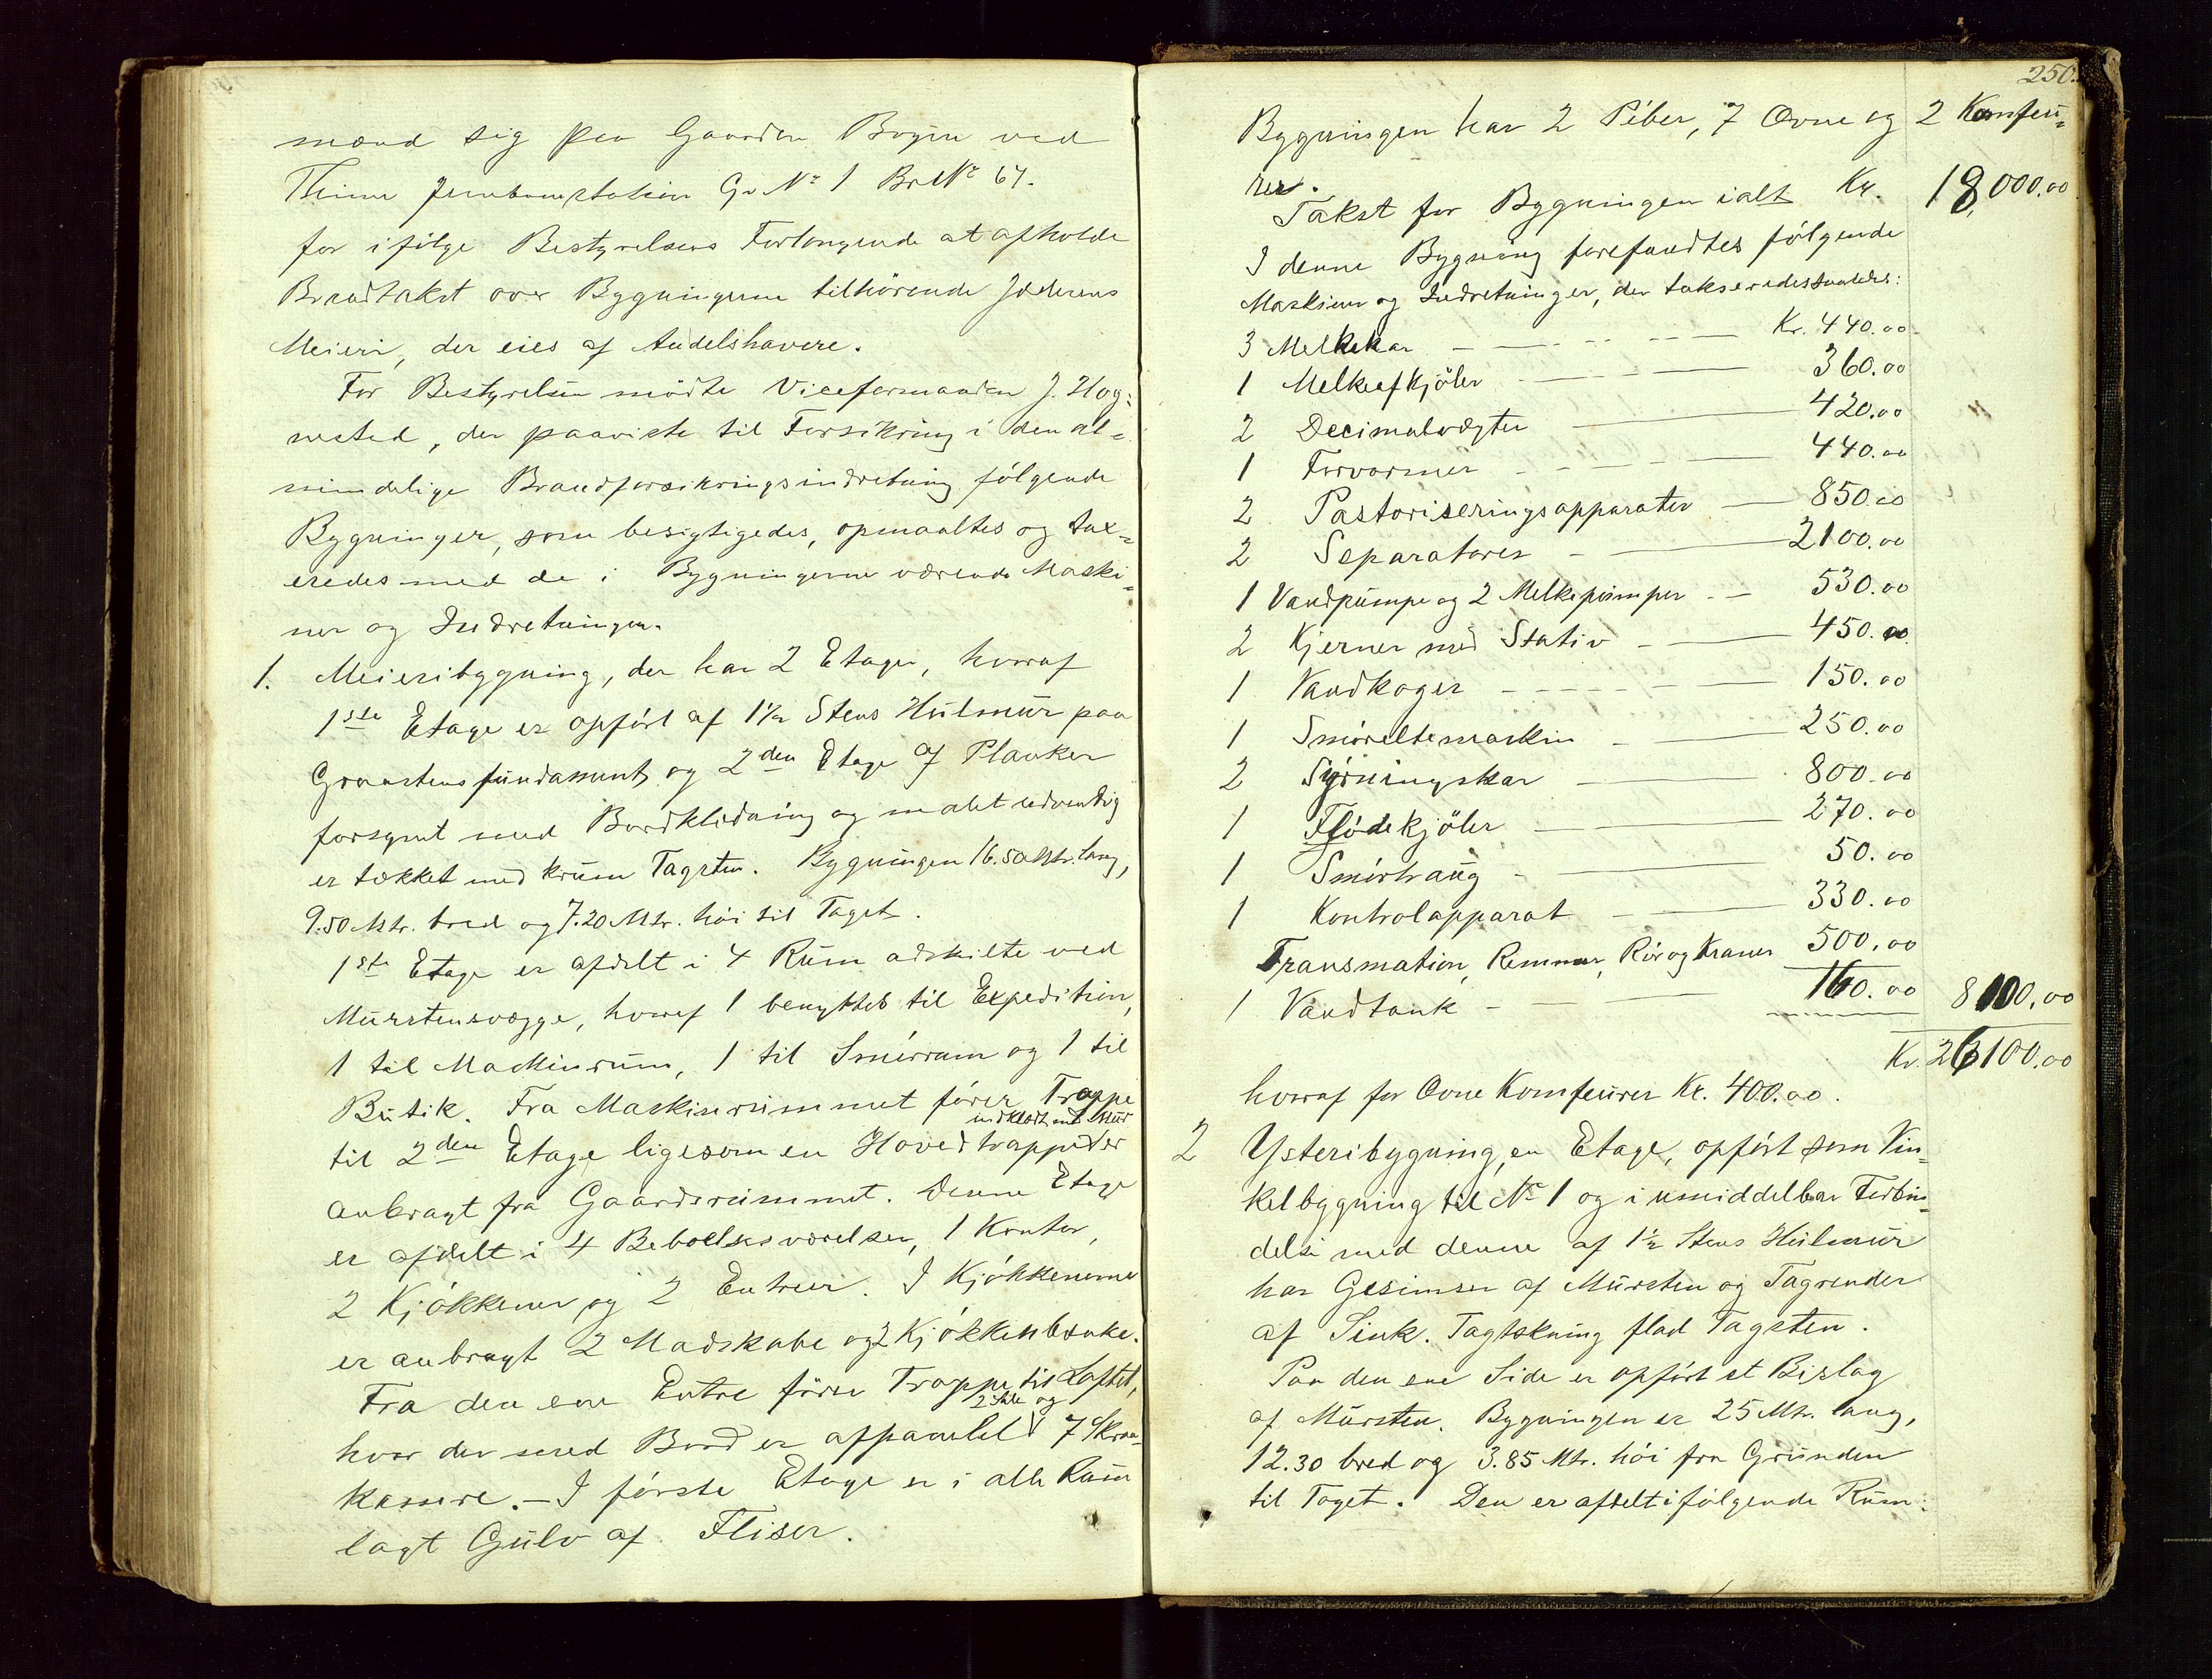 mænd sig paa Gaarden Bryne ved
Thime Jernbanestation G. No 1 Br. No 67.
for ifølge Bestyrelsens Forlangende at afholde
Brandtakst over Bygningerne tilhørende Jæderens
Meieri, der eies af Andelshavere.
For Bestyrelsen mødte Viceformanden J. Hog=
nestad, der paaviste til Forsikring i den al=
mindelige Brandforsikringsindretning følgende
Bygninger, som besigtigedes, opmaaltes og tax=
eredes med de i Bygningerne værende Maski=
ner og Indretninger.
1. Meieribygning, der har 2 Etager, hvoraf
1ste Etage er opført af 1½ Stens Hulmur paa
Graastensfundament og 2den Etage af Planker
forsynt med Bordklædning og malet udvendig
er tækket med krum Tagsten. Bygningen 16.50 Mtr. lang,
9.50 Mtr. bred og 7.20 Mtr. høi til Taget.
1ste Etage er afdelt i 4 Rum adskilte ved
Murstensvægge, hvoraf 1 benyttes til Expedition,
1 til Maskinrum, 1 til Smørrum og 1 til
Butik. Fra Maskinrummet fører Trappe
indklædt med Mur
til 2den Etage ligesom en Hovedtrappe der
anbragt fra Gaardsrummet. Denne Etage
er afdelt i 4 Beboelsesværelser, 1 Kontor,
2 Kjøkkener og 2 Entreer. I Kjøkkenerne
er anbragt 2 Madskabe og 2 Kjøkkenbænke.
Fra den ene Entre fører Trappe til Loftet,
og
hvor der med Bord er afpanelet 7
kamre. – I første Etage er i alle Rum
lagt Gulv af Fliser.
250.
Bygningen har 2 Piber, 7 Ovne og 2 Komfeu=
rer.
Takst for Bygningen ialt Kr. 18,000.00
I denne Bygning forefandtes følgende
Maskiner og Indretninger, der takseredes saaledes:
3 Melkekar — Kr. 440.00
1 Melkeafkjøler — 360.00
2 Decimalvægter — 420.00
1 Forvarmer — 440.00
2 Pastoriseringsapparater — 850.00
2 Separatorer — 2100.00
1 Vandpumpe og 2 Melkepumper — 530.00
2 Kjerner med Stativ — 450.00
1 Vandkoger — 150.00
1 Smøreltemaskin — 250.00
2 Syrningskar — 800.00
1 Flødekjøler — 270.00
1 Smørtraug — 50.00
1 Kontrolapparat — 330.00
Transmation, Remmer, Rør og Kraner 500.00
1 Vandtank — 160.00 8100.00
Kr. 26100.00
hvoraf for Ovne Komfeurer Kr. 400.00.
2 Ysteribygning, en Etage, opført som Vin=
kelbygning til No 1 og i umiddelbar Forbin=
delse med denne af 1½ Stens Hulmur
har Gesimser af Mursten og Tagrender
af Sink. Tagtækning flad Tagsten.
Paa den ene Side er opført et Bislag
af Mursten. Bygningen er 25 Mtr. lang,
12.30 bred og 3.85 Mtr. høi fra Grunden
til Taget. Den er afdelt i følgende Rum: